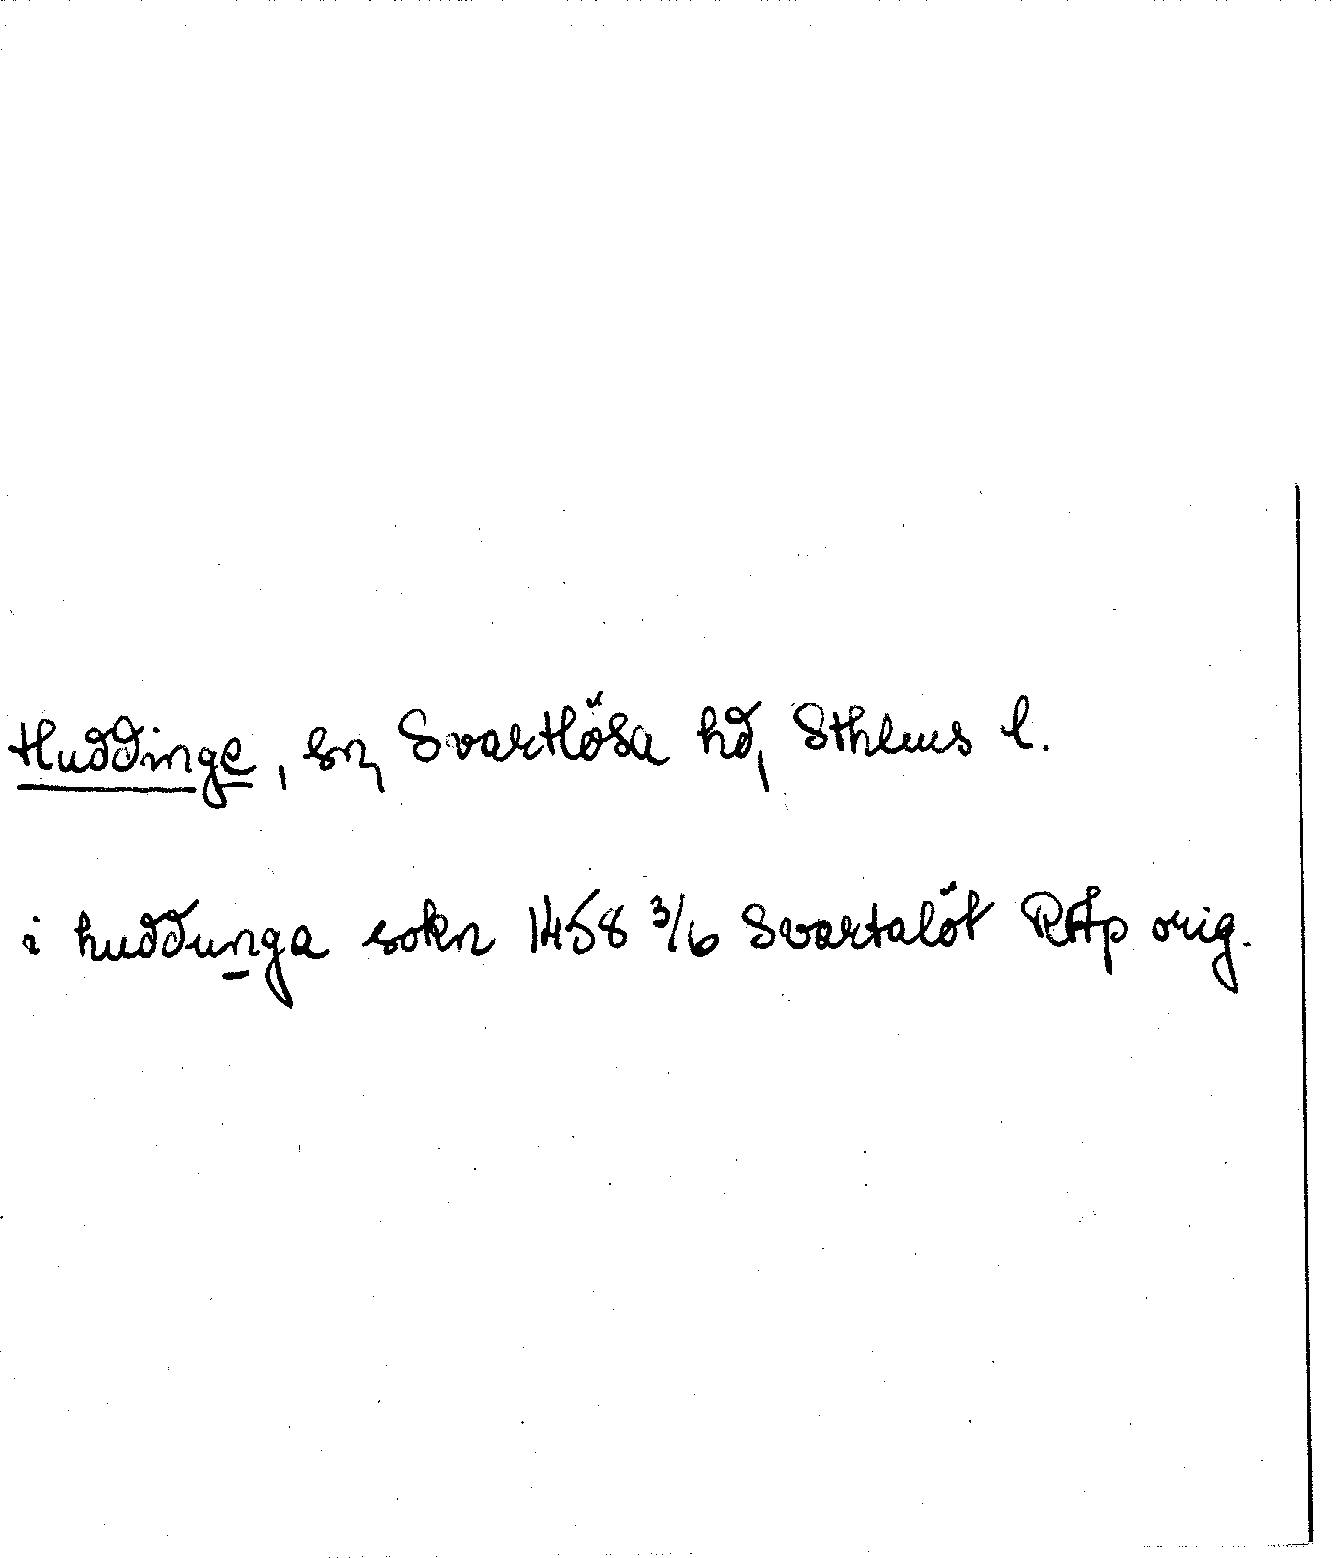 Huddinge, sn, Svartlösa hd, Sthlms l.
i huddunga sokn 1458 3/6 Svartalöt RAp orig.